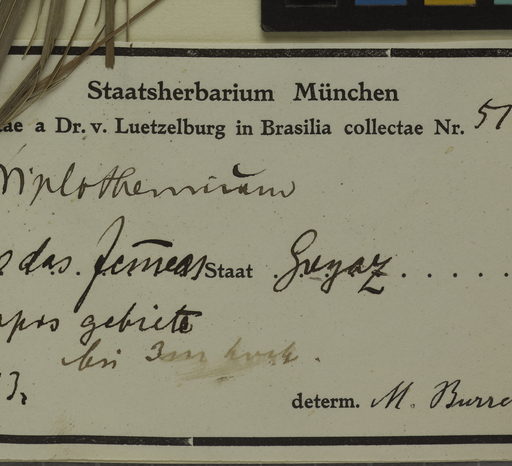 Staatsherbarium München
tae a Dr. v. Luetzelburg in Brasilia collectae Nr. 51
Diplothemium
das Staat Goyaz
gebiete
bis 3m hoch.
13.
determ. M. Burre